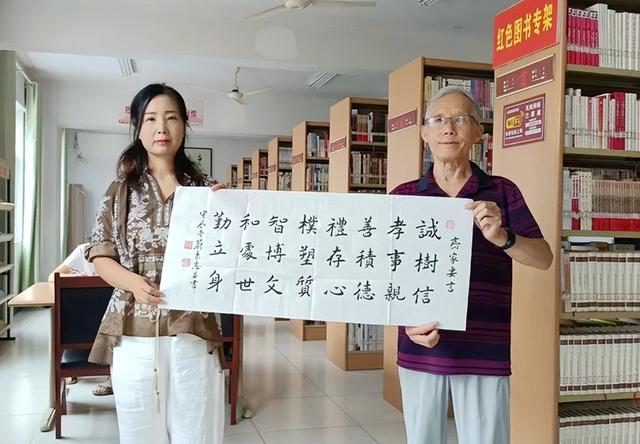 红色图书专架
齐家要言
誠樹信
孝事親
善積德
禮存心
樸塑質
智博文
和處世
勤立身
甲辰年